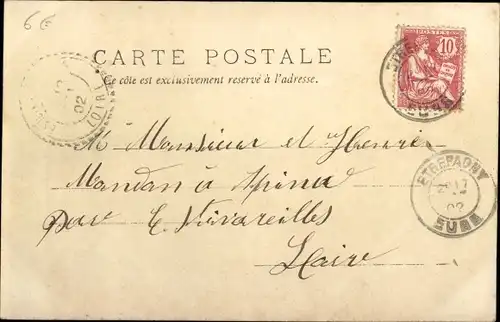 6€
CARTE POSTALE
Ce côté est exclusivement reservé à l'adresse.
POSTES
10
EURE
02
LOIRE
ETREPAGNY
02
EURE
M Monsieur et Henri
Mandon à
par Estivareilles
Loire